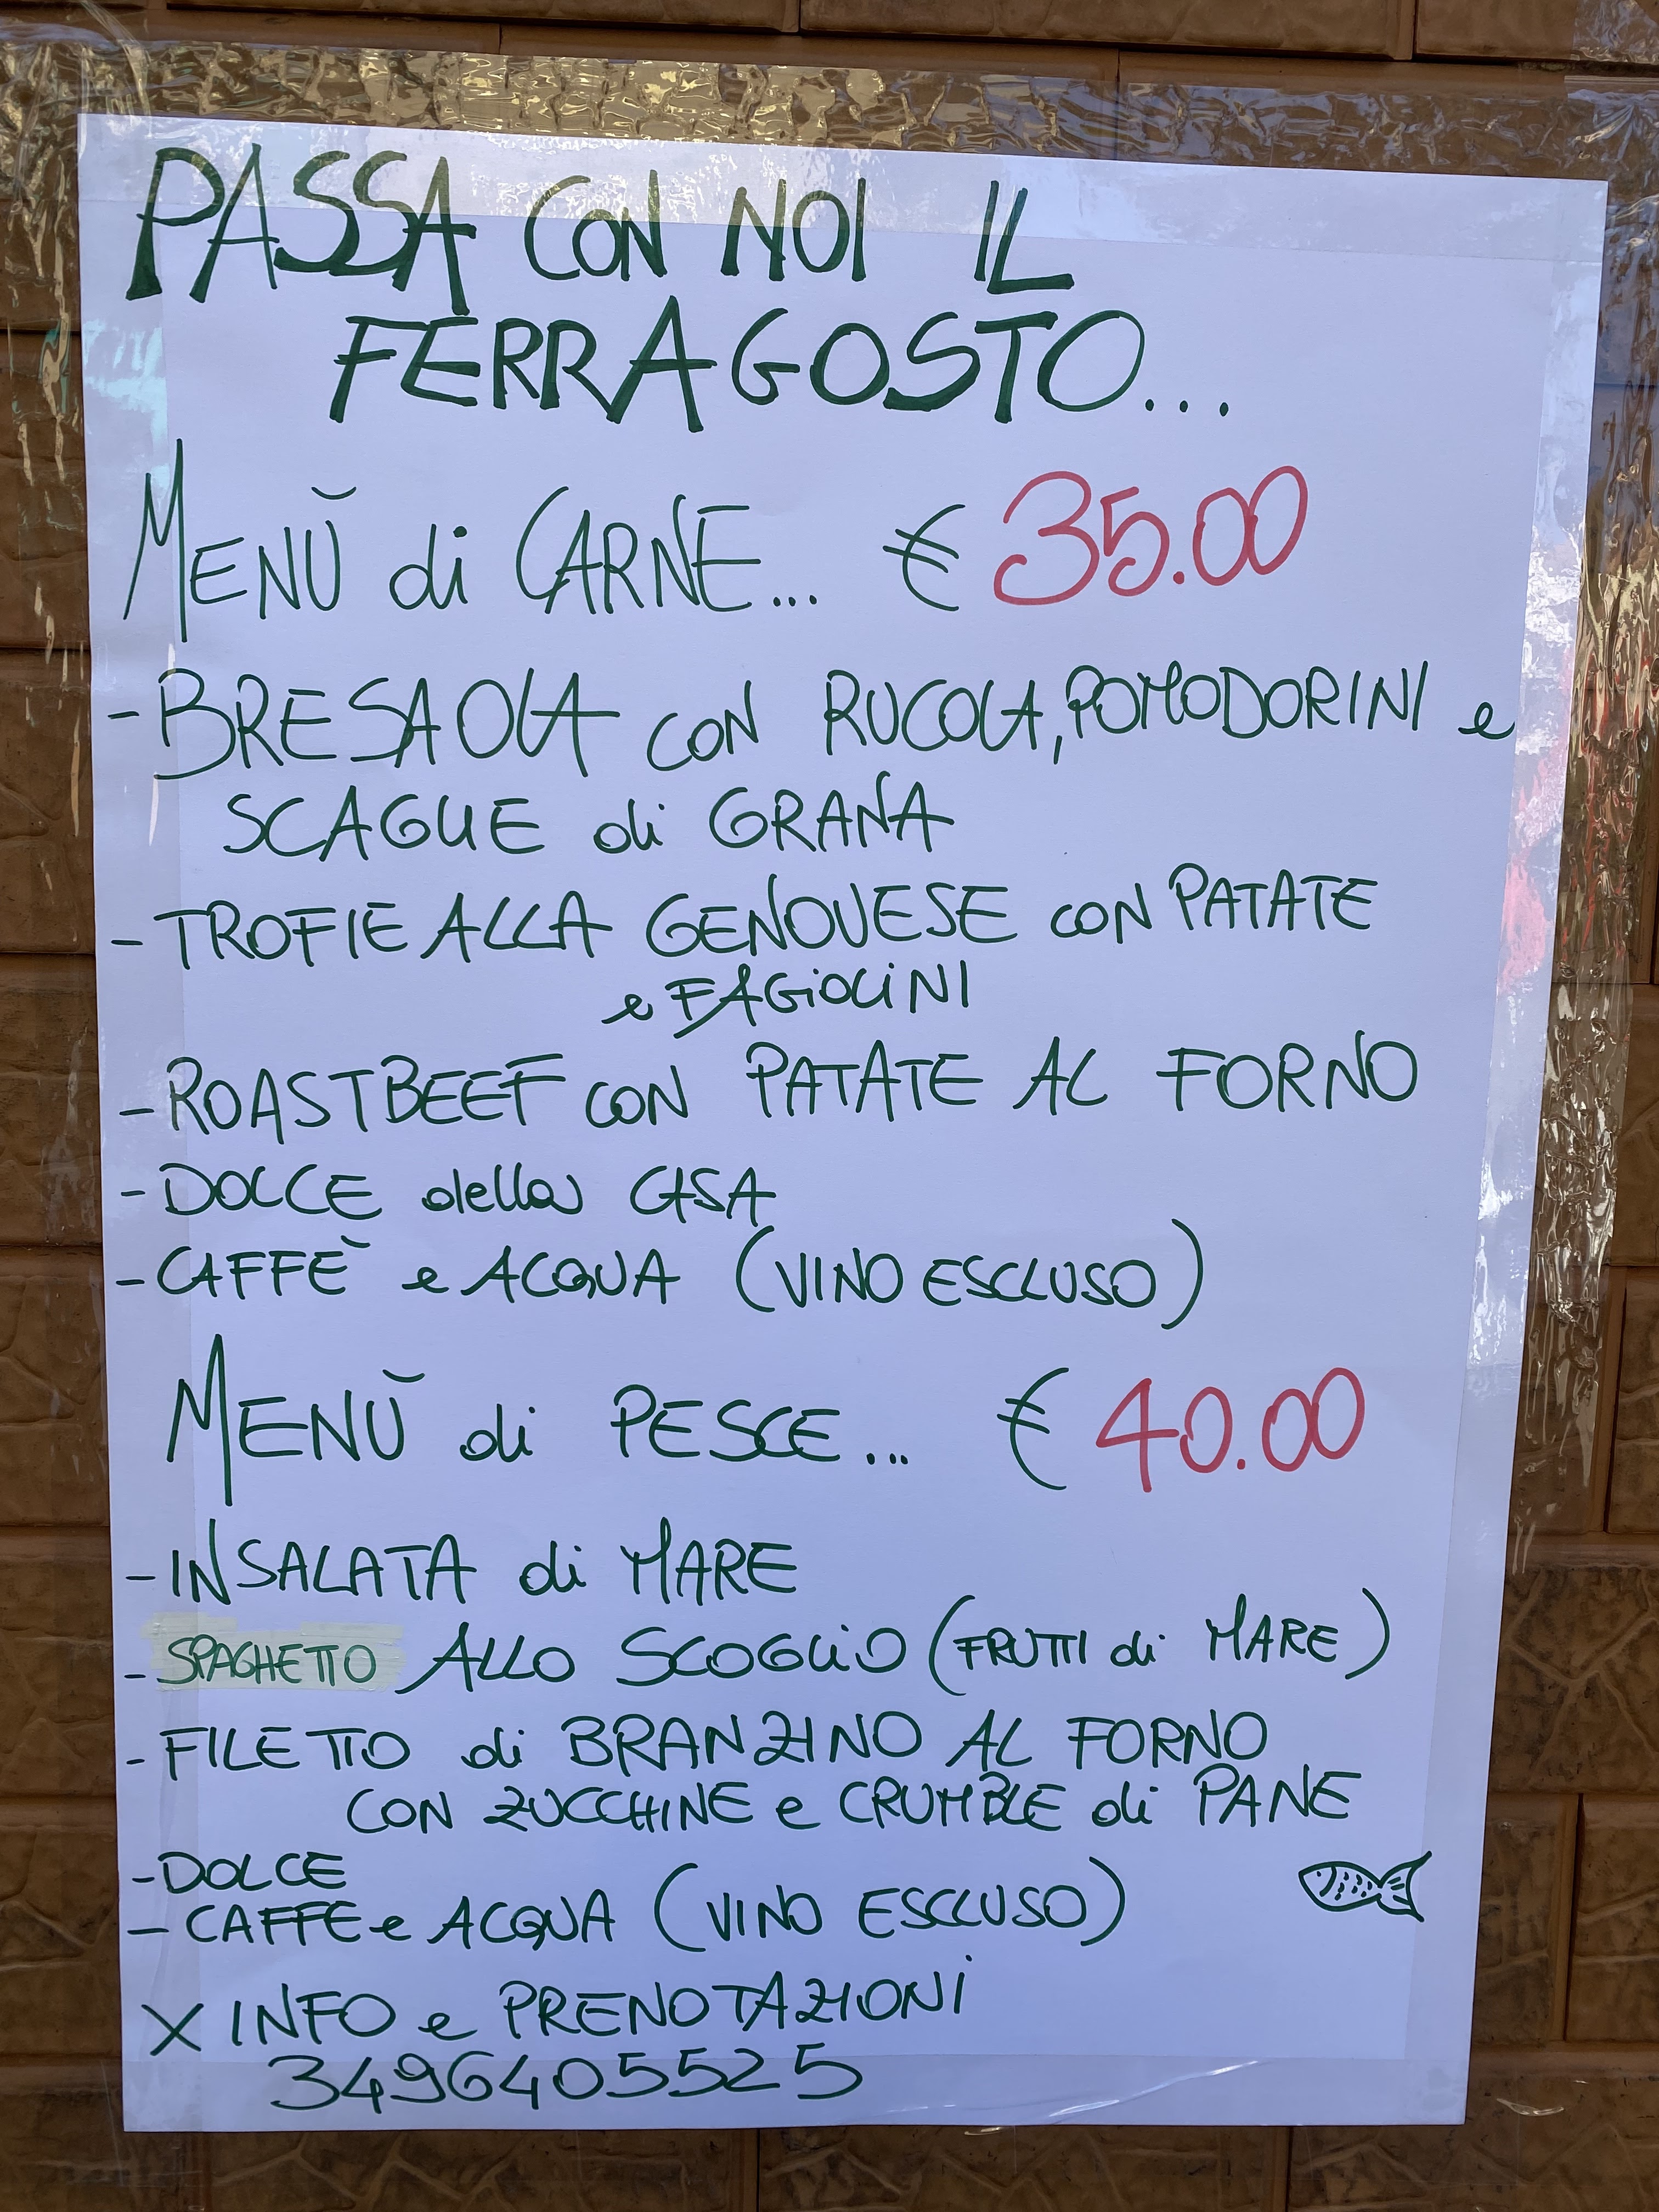 PASSA CON NOI IL
FERRAGOSTO...
MENÙ di CARNE... € 35.00
- BRESAOLA CON RUCOLA, POMODORINI e
SCAGLIE di GRANA
- TROFIE ALLA GENOVESE CON PATATE
e FAGIOLINI
- ROASTBEEF CON PATATE AL FORNO
- DOLCE della CASA
- CAFFÈ e ACQUA (VINO ESCLUSO)
MENÙ di PESCE... € 40.00
- INSALATA di MARE
- SPAGHETTO ALLO SCOGLIO (FRUTTI di MARE)
- FILETTO di BRANZINO AL FORNO
CON ZUCCHINE e CRUMBLE di PANE
- DOLCE
- CAFFE e ACQUA (VINO ESCLUSO)
X INFO e PRENOTAZIONI
3496405525